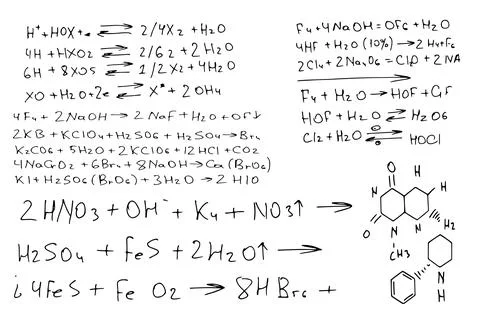 H⁺ + HOX + e ⇌ 2/4X2 + H2O
4H + HXO2 ⇌ 2/62 + 2H2O
6H + 8XO5 ⇌ 1/2X2 + 4H2O
XO + H2O + 2e ⇌ X* + 2OH4
4F4 + 2NaOH → 2NaF + H2O + OF↓
2KB + KClO4 + H2SO6 + H2SO4 → Br4
K2CO6 + 5H2O + 2KClO6 + 12HCl + CO2
4NaGO2 + 6Br4 + 8NaOH → Ca(BrO6)
K1 + H2SO6(BrO6) + 3H2O → 2H1O
F4 + 4NaOH = OF6 + H2O
4HF + H2O (10%) → 2H4 + F6
2Cl4 + 2Na2O6 = Cl2O + 2NA
F4 + H2O → HOF + GF
HOF + H2O ⇌ H2O6
Cl2 + H2O ⇌ HOCl
2HNO3 + OH⁻ + K4 + NO3↑ →
H2SO4 + FeS + 2H2O↑ →
4FeS + FeO2 → 8HBr6 +
O
N
H
H
O
N
H2
CH3
N
H